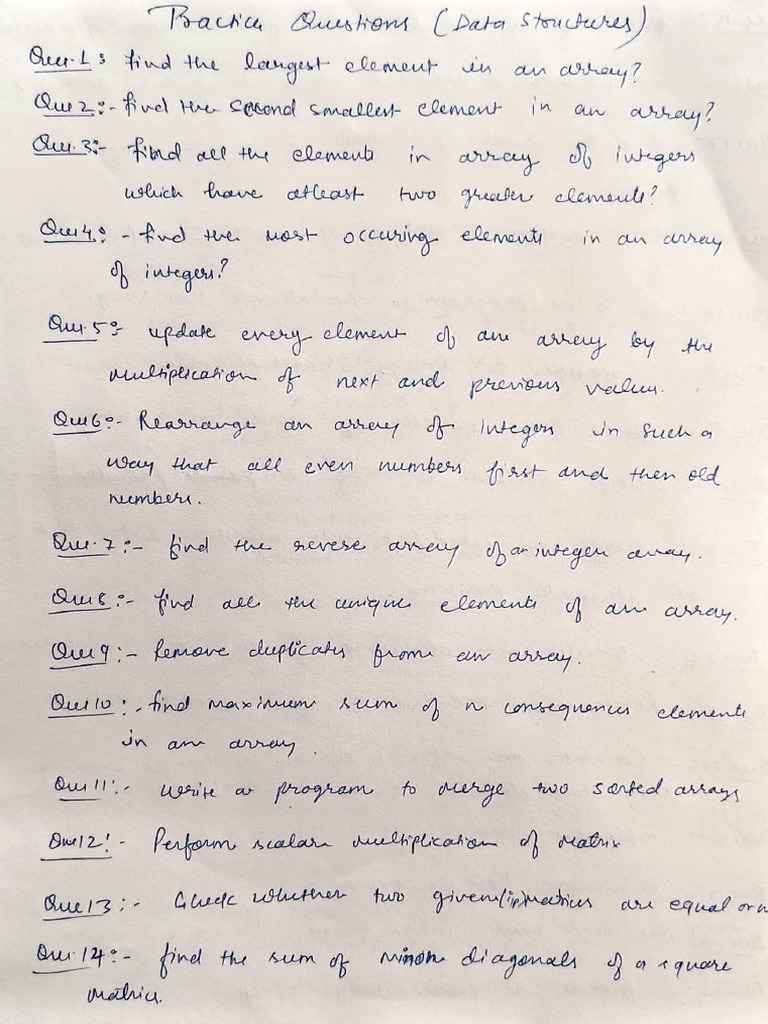 Practice Questions (Data Structures)
Que.1: find the largest element in an array?
Que 2:- find the second smallest element in an array?
Que.3:- find all the elements in array of integers
which have atleast two greater elements?
Que 4:- find the most occuring elements in an array
of integers?
Que.5:- update every element of an array by the
multiplication of next and previous value.
Que6:- Rearrange an array of integers in such a
way that all even numbers first and then old
numbers.
Que.7:- find the reverse array of an integer array.
Que8:- find all the unique elements of an array.
Que9:- Remove duplicates from an array.
Que10:- find maximum sum of n consequences elements
in an array.
Que11:- Write a program to merge two sorted arrays
Que12:- Perform scalar multiplication of matrix
Que13:- Check whether two given(ip) matrices are equal or n
Que.14:- find the sum of minor diagonals of a square
matrix.